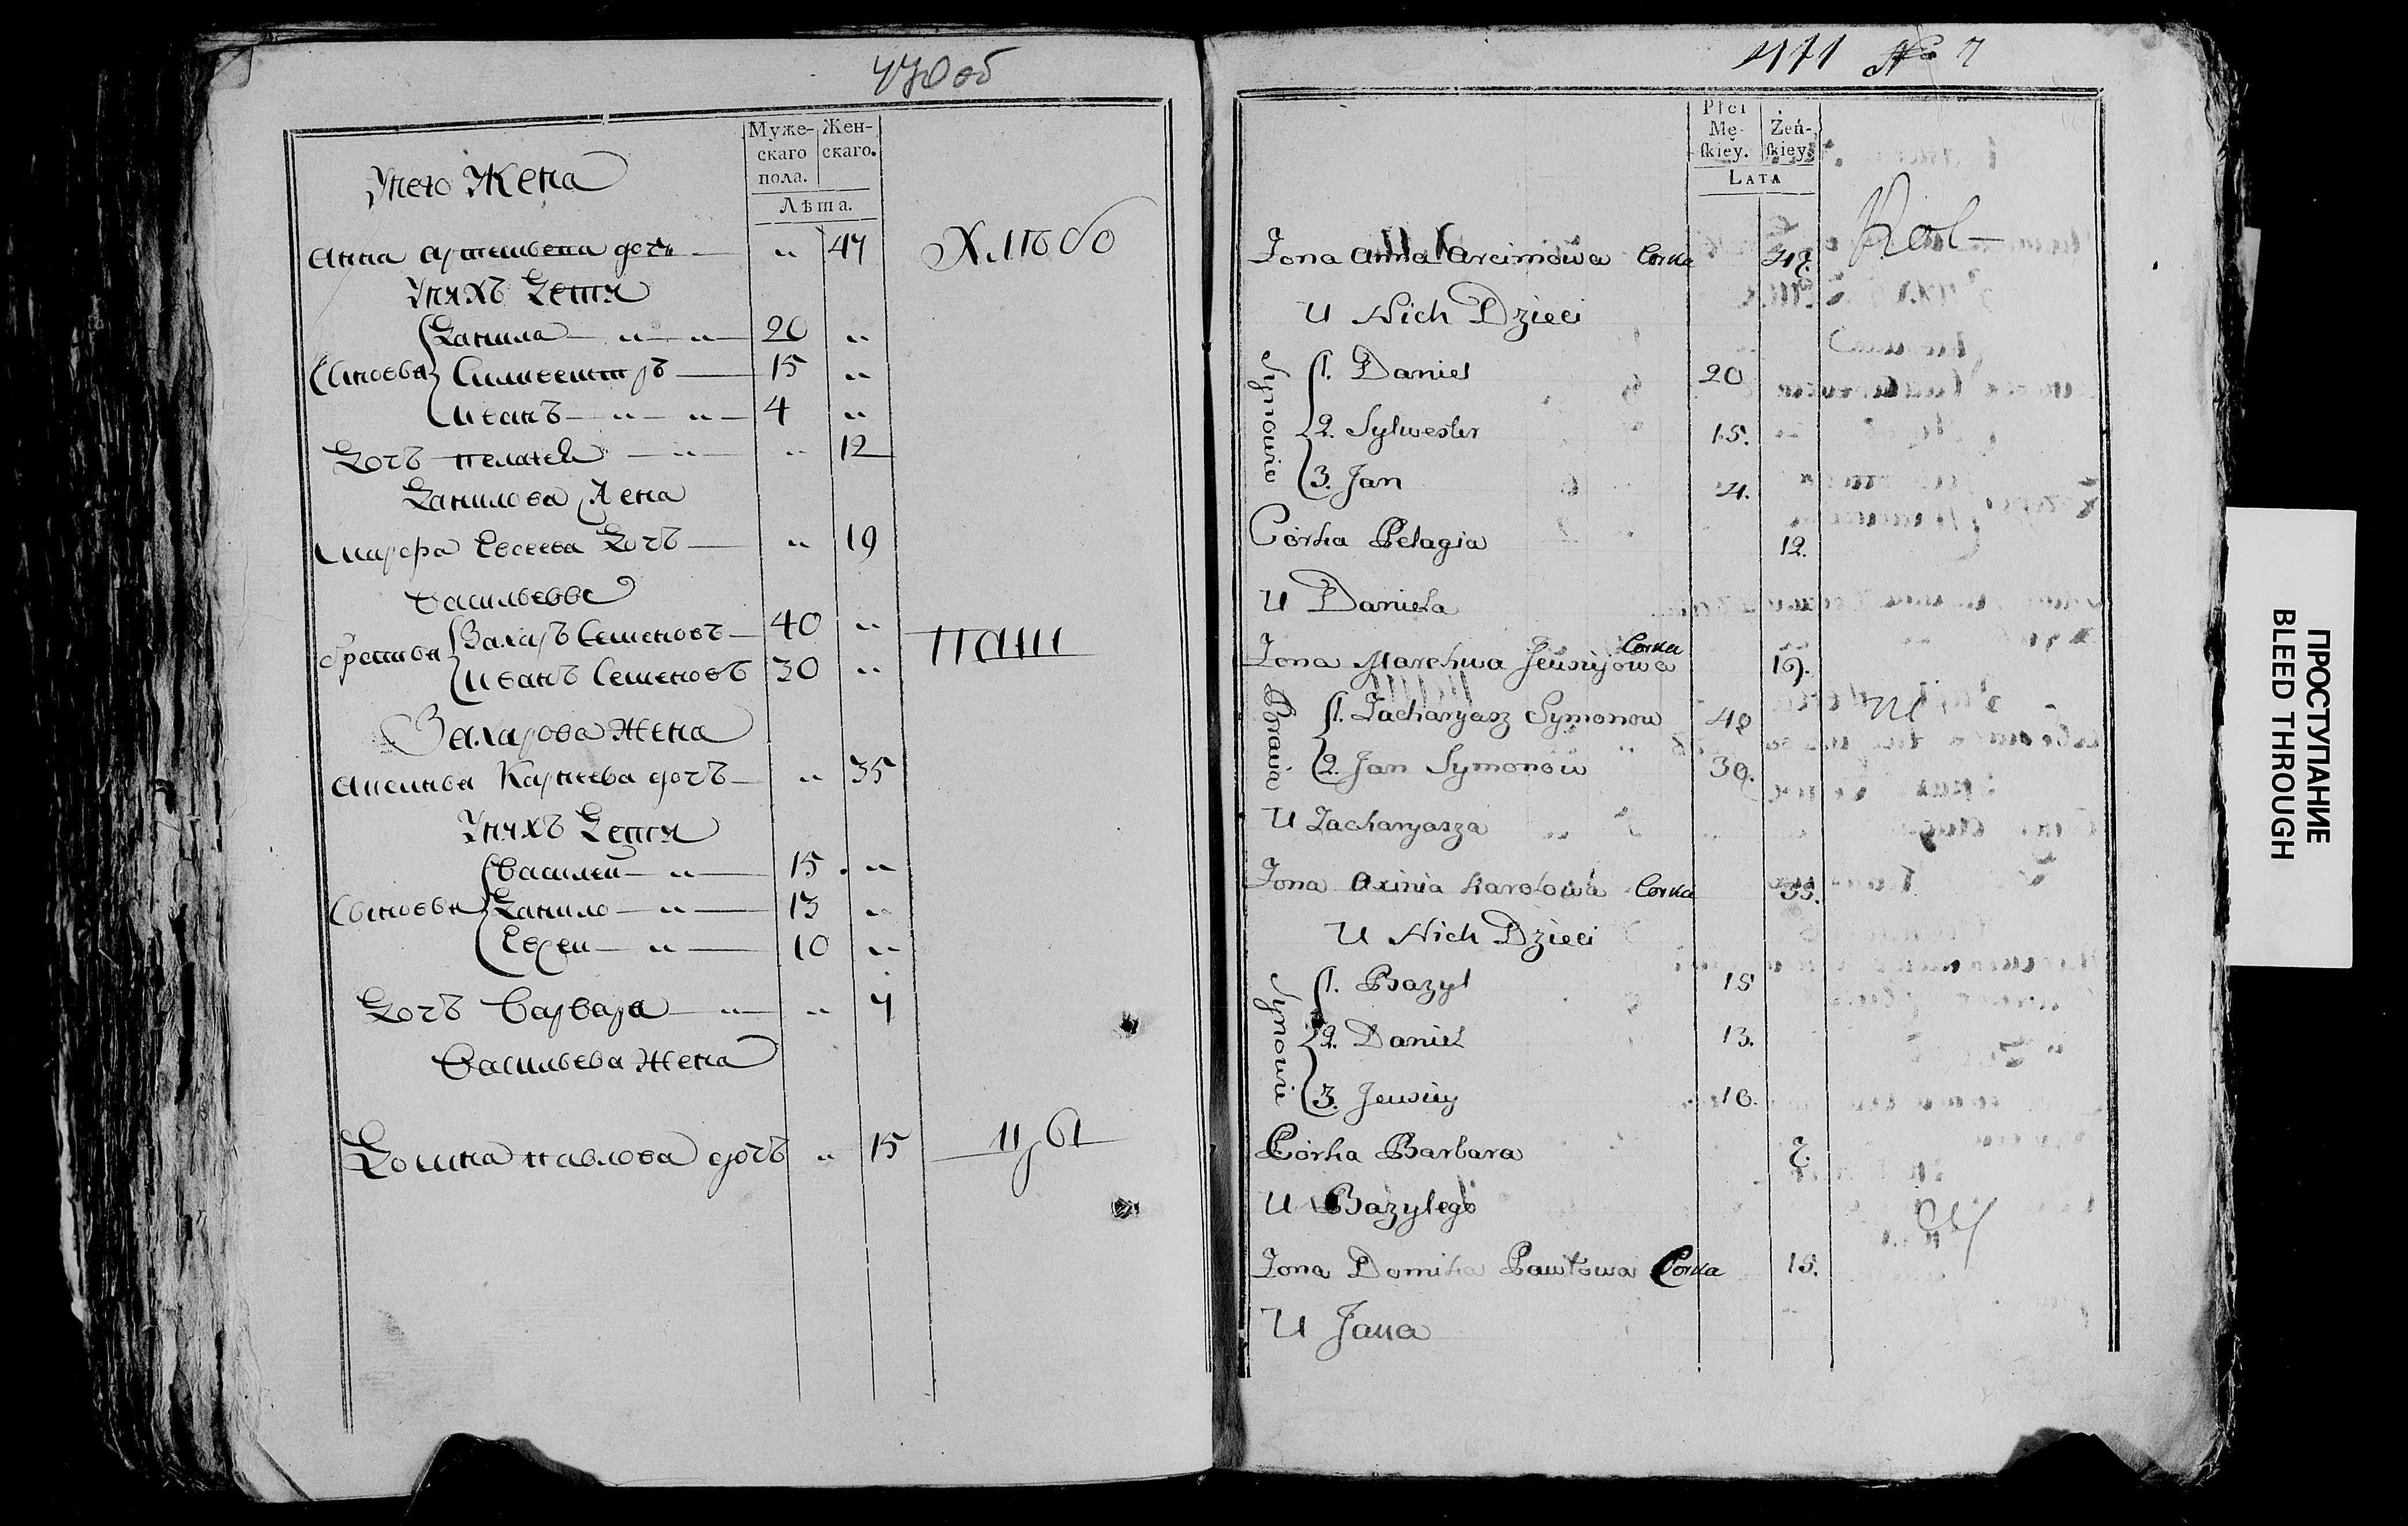 470 об
Муже- Жен-
скаго скаго.
пола.
Лѣта.
Унего Жена
Анна Артемьева дочь 47
Хлѣбо
Унихъ Дети
Сыновья
Данила 20
Силивестръ 15
Иванъ 4
Дочъ пелагея 12
Данилова Жена
Марфа Евсеева Дочъ 19
Васильевы
братья
Захаръ Семеновъ 40
Иванъ Семеновъ 30
паш
Захарова Жена
Аксинья Карпеева дочъ 35
Унихъ Дети
Сыновья
Василей 15
Данило 13
Евсеи 10
Дочъ Варвара 7
Васильева Жена
Домна павлова дочъ 15
цы
471 № 7
Płci
Mę- Żeń-
skiey. skiey.
LATA
Żona Anna Arcimowa Corka 47.
Rol-
U Nich Dzieci
Synowie
1. Daniel 20
2. Sylwester 15.
3. Jan 4.
Córka Pelagia 12.
U Daniela
Żona Marchwa Jewsiejowa Corka 19.
Bracia
1. Zacharyasz Symonow 40
ni
2. Jan Symonow 30.
U Zacharyasza
Żona Axinia Karolowa Corka 35.
U Nich Dzieci
Synowie
1. Bazyl 15
2. Daniel 13.
3. Jewsiey 10.
Córka Barbara 7.
U Bazylego
Żona Domika Pawłowa Corka 15.
cy
U Jana
ПРОСТУПАНИЕ
BLEED THROUGH